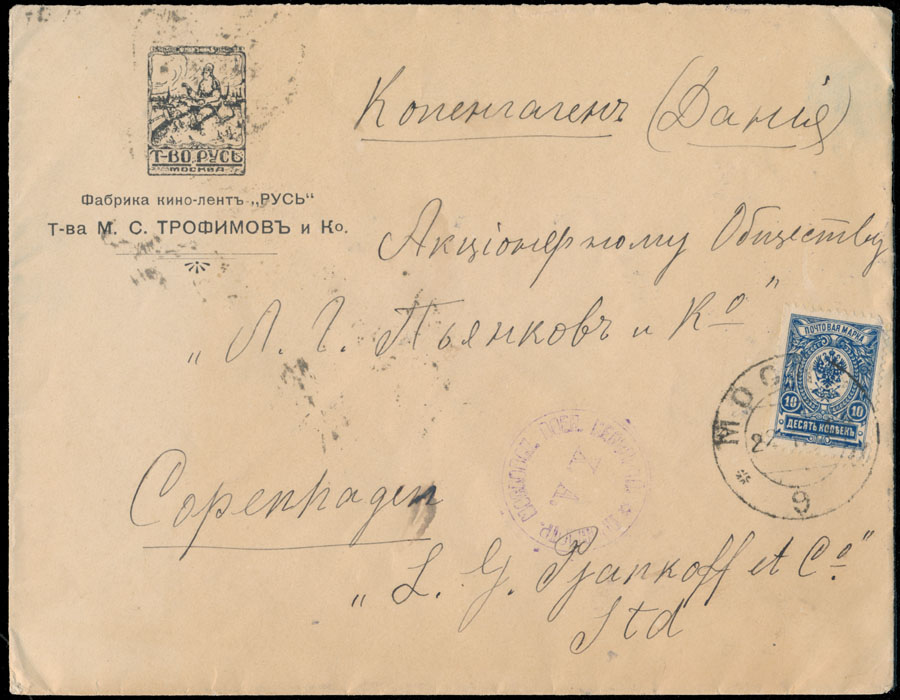 Т-ВО РУСЬ
МОСКВА
Фабрика кино-лентъ „РУСЬ“
Т-ва М. С. ТРОФИМОВЪ и Ко.
Копенгагенъ (Данія)
Акціонерному Обществу
„Л. Г. Пьянковъ и Ко"
ПОЧТОВАЯ МАРКА
10 10
ДЕСЯТЬ КОПѢЕКЪ
МОС
22
9
Copenhagen
„L. G. Pjankoff et Co"
Ltd